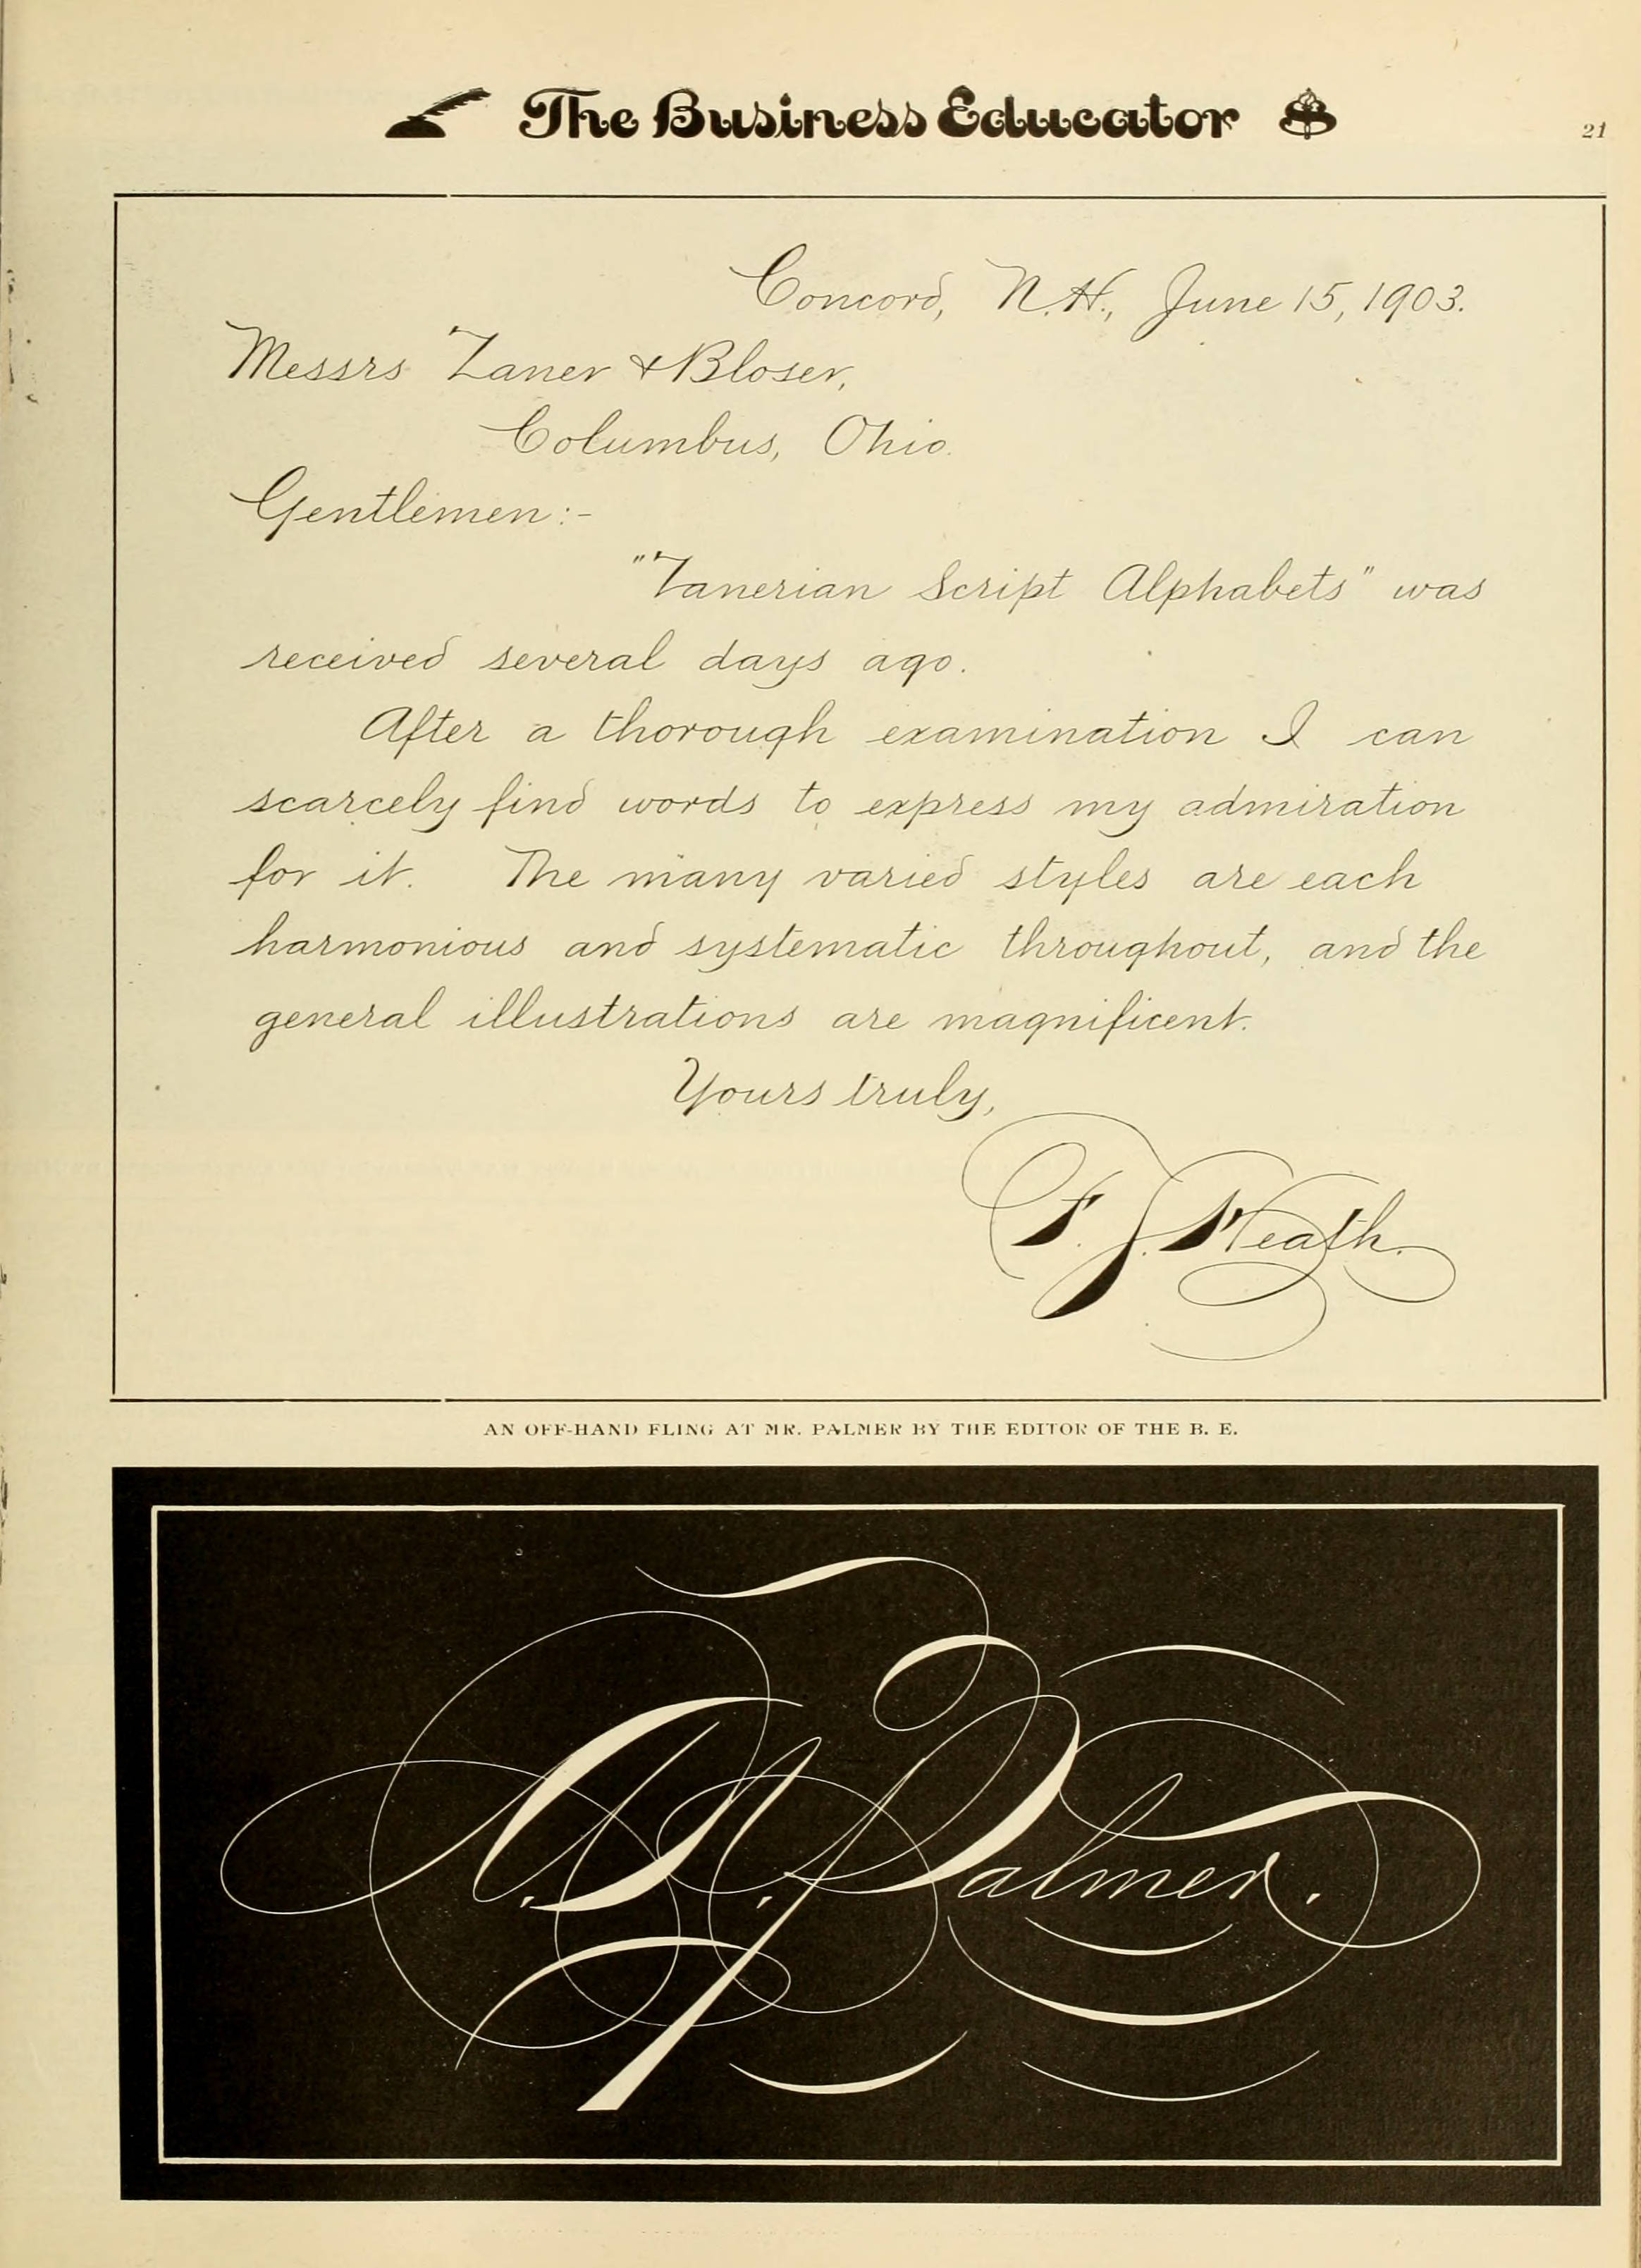 The Business Educator
21
Concord, N.H., June 15, 1903.
Messrs Zaner & Bloser,
Columbus, Ohio.
Gentlemen:-
"Zanerian Script Alphabets" was
received several days ago.
After a thorough examination I can
scarcely find words to express my admiration
for it. The many varied styles are each
harmonious and systematic throughout, and the
general illustrations are magnificent.
Yours truly,
F. J. Heath.
AN OFF-HAND FLING AT MR. PALMER BY THE EDITOR OF THE B. E.
A. N. Palmer.